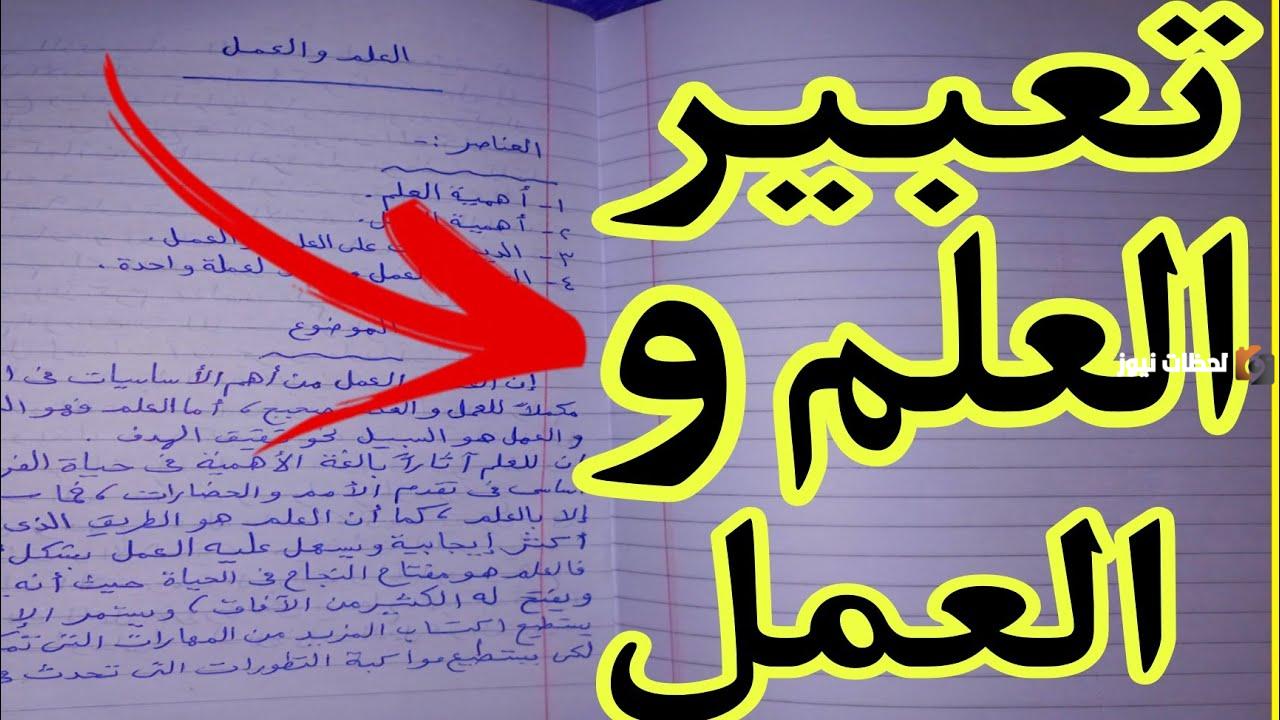 تعبير
العلم و
العمل
لحظات نيوز
العلم والعمل
العناصر :-
١- أهمية العلم.
٢- أهمية
٣- على العلم والعمل.
٤- العمل لعملة واحدة.
الموضوع
إن العمل من أهم الأساسيات فى
مكملاً للعمل و صحيح، أما العلم فهو
والعمل هو السبيل نحو تحقيق الهدف.
إن للعلم آثاراً بالغة الأهمية فى حياة
أساسى فى تقدم الأمم والحضارات، فما
إلا بالعلم، كما أن العلم هو الطريق الذى
أكثر إيجابية ويسهل عليه العمل بشكل
فالعلم هو مفتاح النجاح فى الحياة حيث أنه
ويفتح له الكثير من الآفاق، ويستمر
يستطيع اكتساب المزيد من المهارات التى
لكى يستطيع مواكبة التطورات التى تحدث